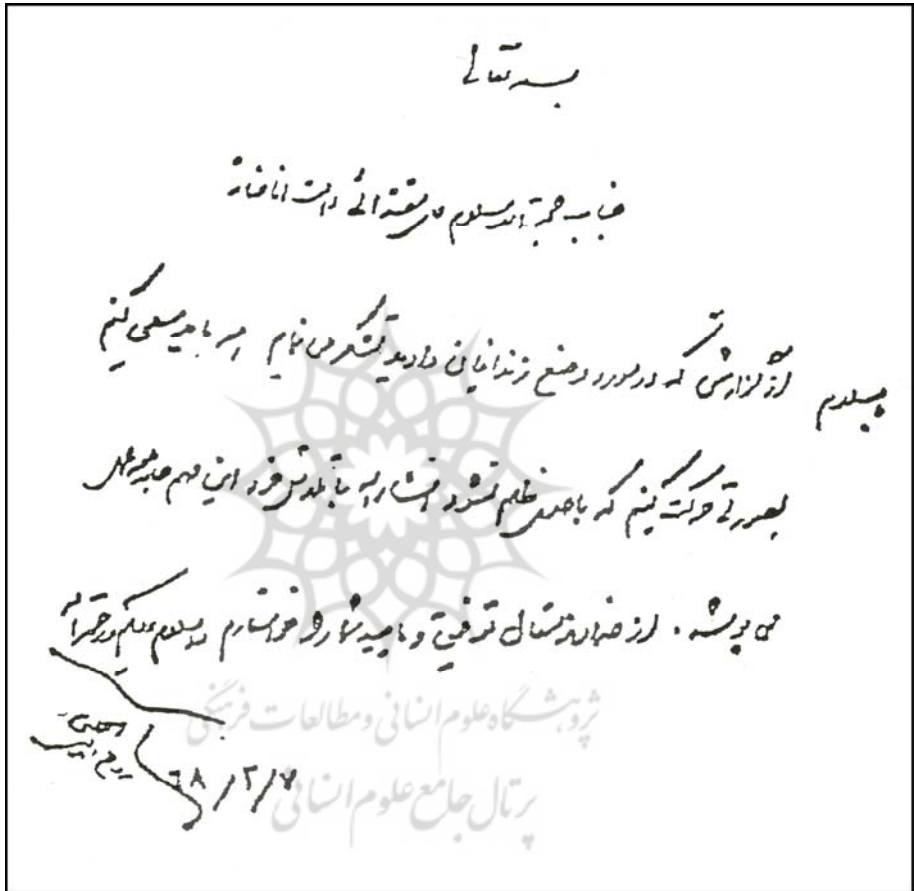 بسمه تعالی
جناب حجة الاسلام علی مقتدائی دامت افاضاته
با سلام از گزارشی که در مورد وضع زندانیان دادید تشکر می نمایم. همه باید سعی کنیم
بصورتی حرکت کنیم که با حدی ظلم نشود انشاءالله با تلاش خود این مهم جامه عمل
می پوشد. از خداوند متعال توفیق و تایید شما را خواستارم والسلام علیکم ورحمة الله
۶۸/۲/۷
روح الله الموسوی الخمینی
پژوهشگاه علوم انسانی و مطالعات فرهنگی
پرتال جامع علوم انسانی